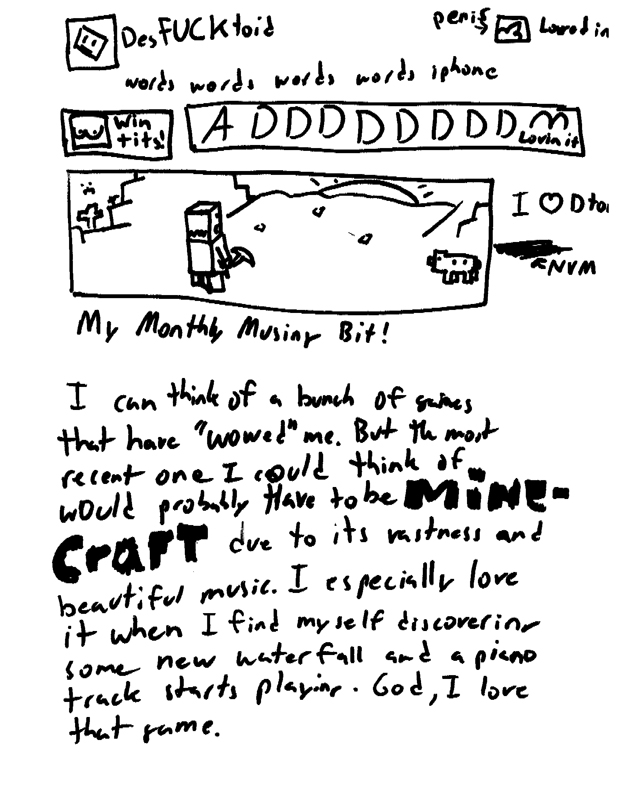 DesFUCKtoid
penis
Loved in
words words words words iphone
win
tits!
ADDDDDDDD
Lovin it
I ♡ Dto
NVM
My Monthly Musing Bit!
I can think of a bunch of games
that have "wowed" me. But the most
recent one I could think of
would probably Have to be MiNE-
CrafT due to its vastness and
beautiful music. I especially love
it when I find myself discovering
some new waterfall and a piano
track starts playing. God, I love
that game.